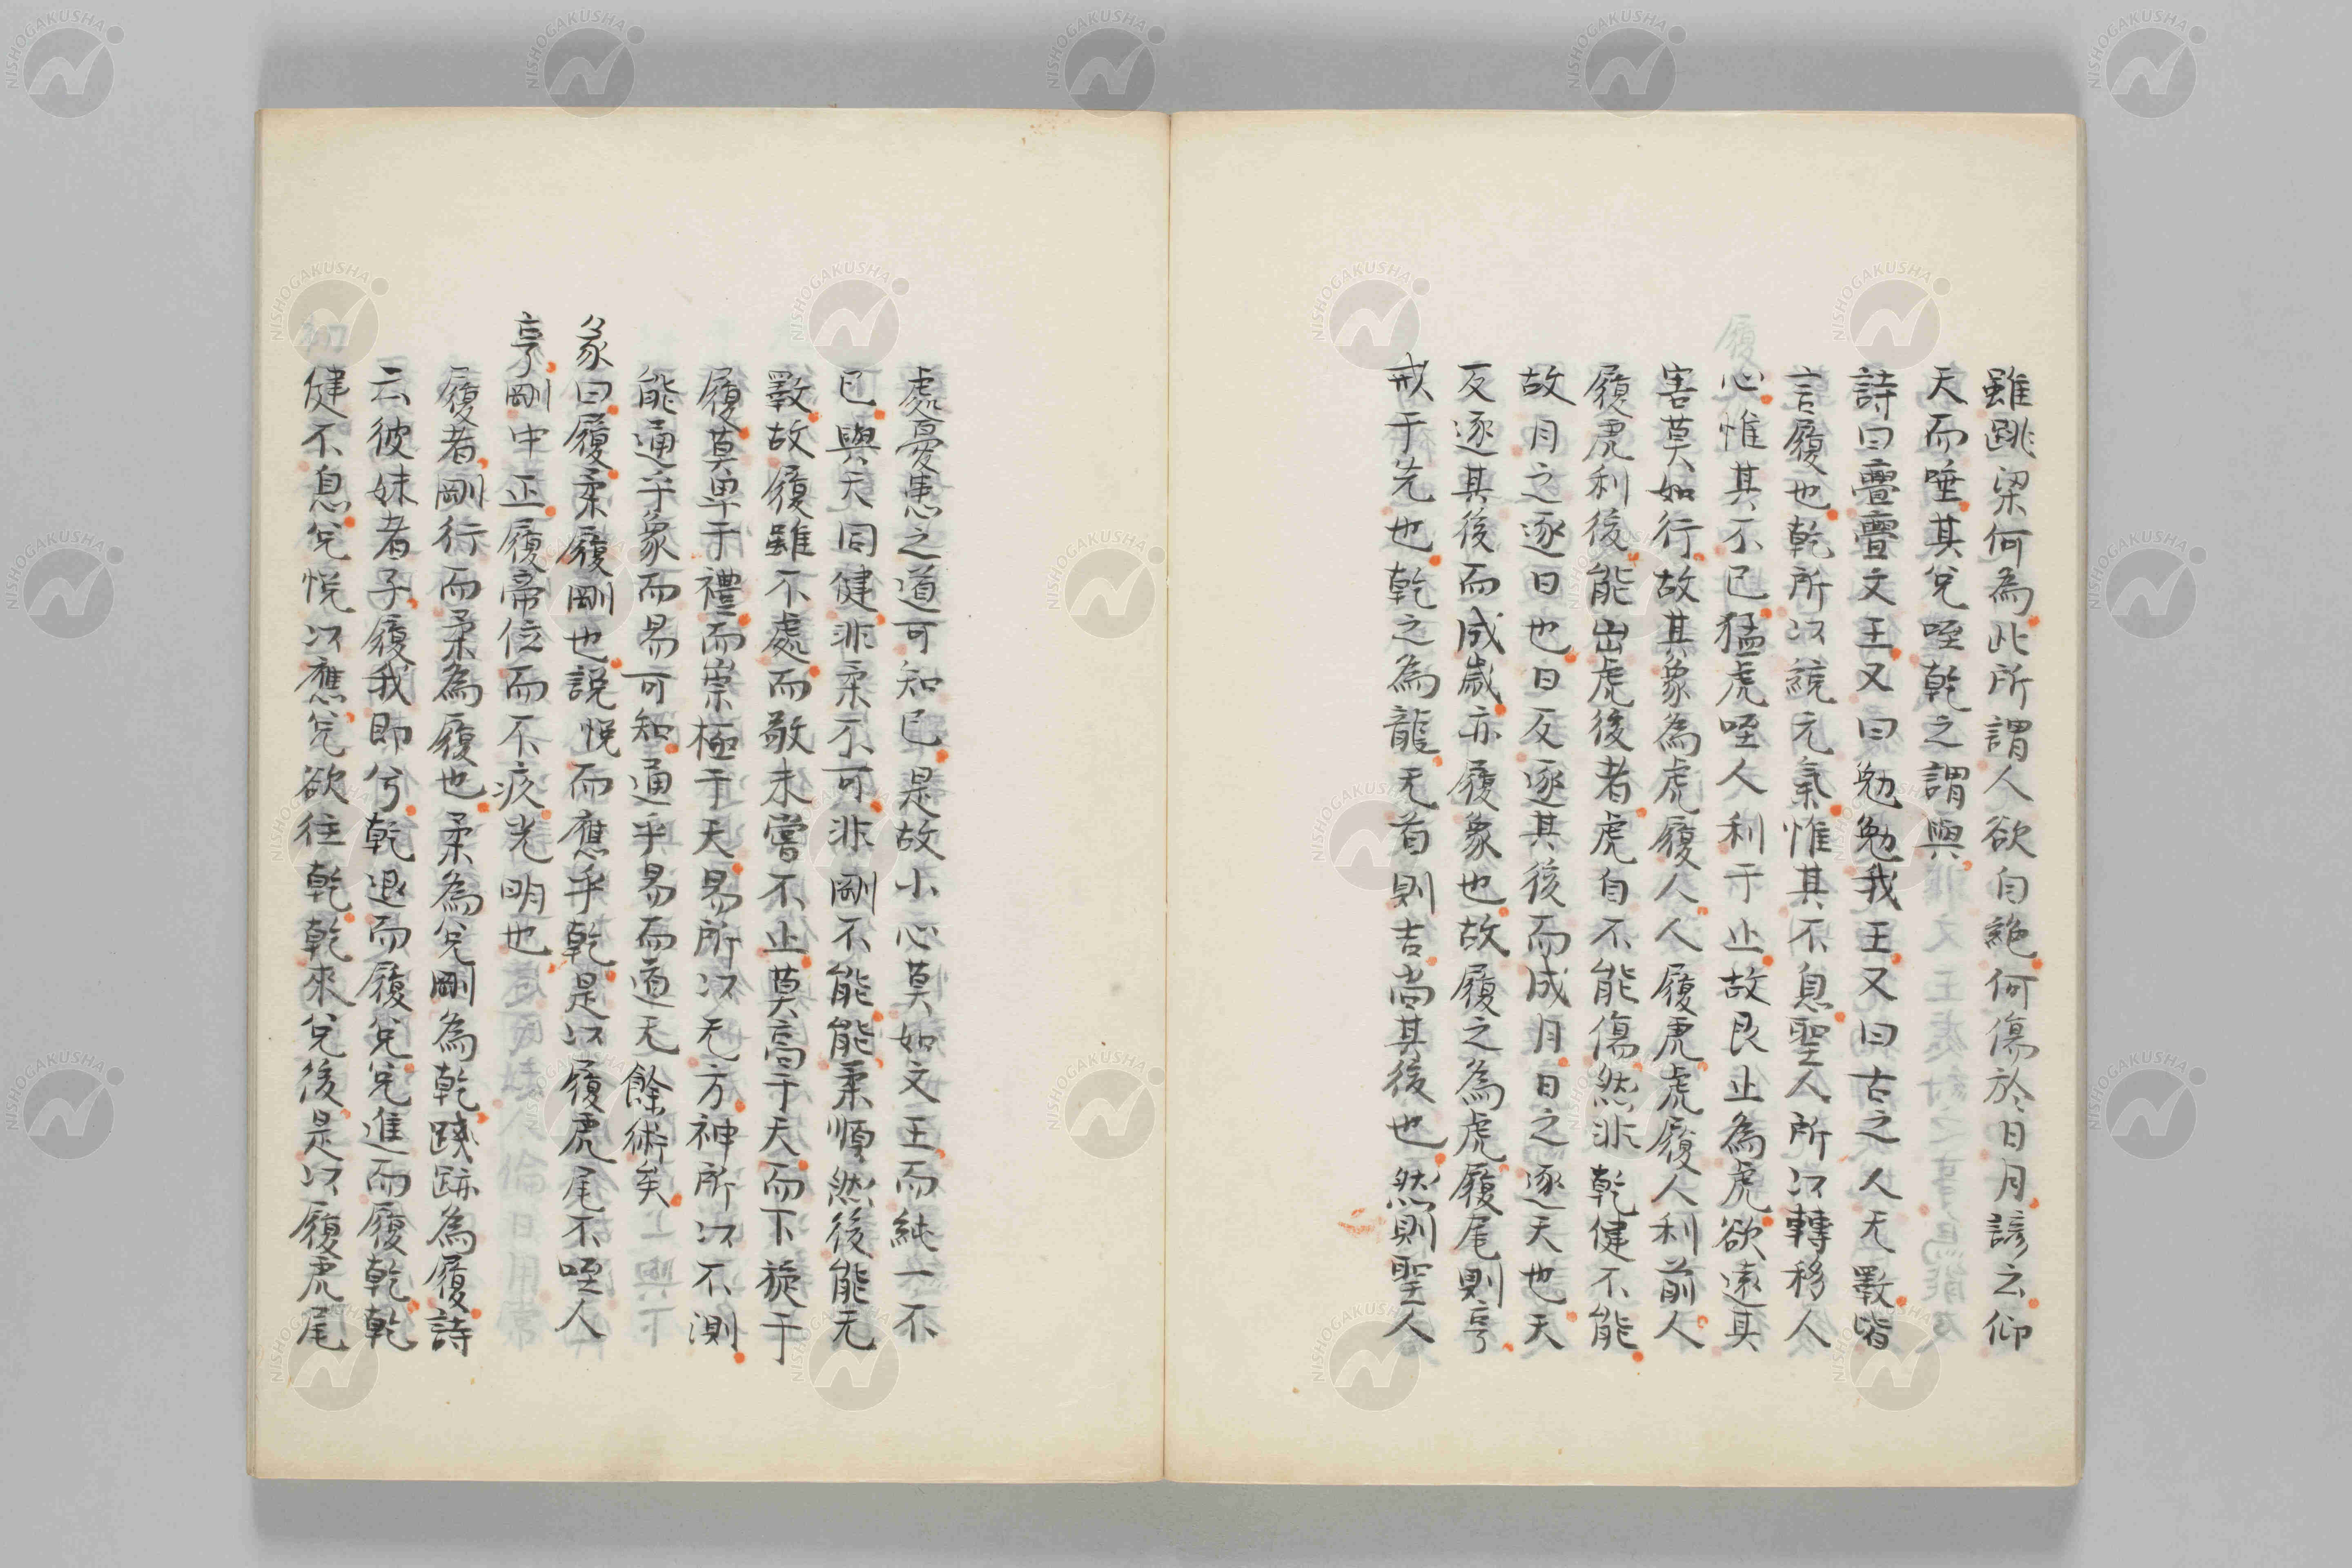 雖跳梁何為此所謂人欲自絕何傷於日月諺云仰
天而唾其兌咥乾之謂與
詩曰亹亹文王又曰勉勉我王又曰古之人无斁皆
言履也乾所以統元氣惟其不息聖人所以轉移人
心惟其不已猛虎咥人利于止故艮止為虎欲遠其
害莫如行故其象為虎履人人履虎虎履人利前人
履虎利後能出虎後者虎自不能傷然非乾健不能
故月之逐日也日反逐其後而成月日之逐天也天
反逐其後而成歲亦履象也故履之為虎履尾則亨
戒于先也乾之為龍无首則吉尚其後也然則聖人
處憂患之道可知已是故小心莫如文王而純一不
已與天同健非柔不可非剛不能能柔順然後能无
斁故履雖不處而敬未嘗不止莫高于天而下旋于
履莫卑于禮而崇極于天易所以无方神所以不測
能通乎象而易可知通乎易而道无餘術矣
彖曰履柔履剛也說悅而應乎乾是以履虎尾不咥人
亨剛中正履帝位而不疚光明也
履者剛行而柔為履也柔為兌剛為乾踐跡為履詩
云彼姝者子履我即兮乾退而履兌兌進而履乾乾
健不息兌悅以應兌欲往乾乾來兌後是以履虎尾
NISHOGAKUSHA